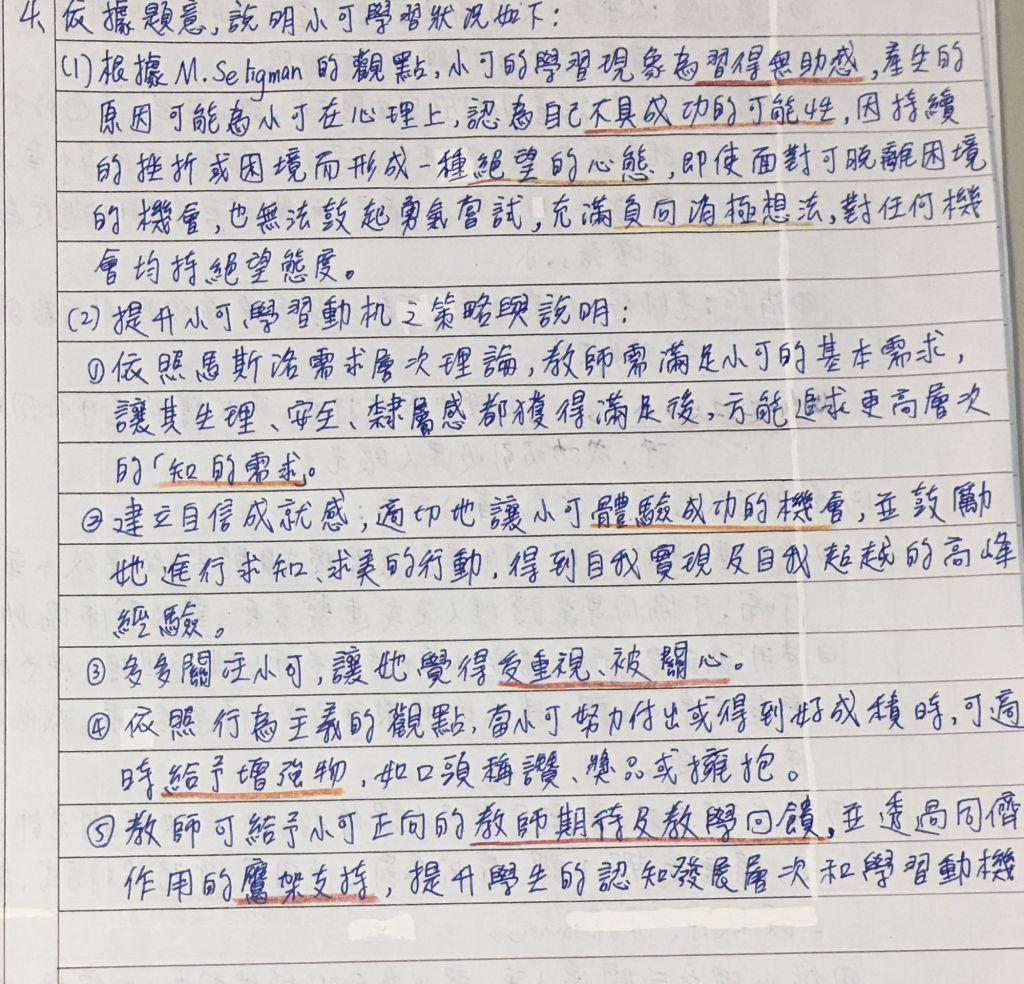 4、依據題意,說明小可學習狀況如下:
(1)根據M.Seligman的觀點,小可的學習現象為習得無助感,產生的
原因可能為小可在心理上,認為自己不具成功的可能性,因持續
的挫折或困境而形成一種絕望的心態,即使面對可脫離困境
的機會,也無法鼓起勇氣嘗試,充滿負向消極想法,對任何機
會均持絕望態度。
(2)提升小可學習動机之策略與說明:
①依照馬斯洛需求層次理論,教師需滿足小可的基本需求,
讓其生理、安全、隸屬感都獲得滿足後,方能追求更高層次
的「知的需求」。
②建立自信成就感,適切地讓小可體驗成功的機會,並鼓勵
她進行求知、求美的行動,得到自我實現及自我超越的高峰
經驗。
③多多關注小可,讓她覺得受重視、被關心。
④依照行為主義的觀點,當小可努力付出或得到好成積時,可適
時給予增強物,如口頭稱讚、獎品或擁抱。
⑤教師可給予小可正向的教師期待及教學回饋,並透過同儕
作用的鷹架支持,提升學生的認知發展層次和學習動機